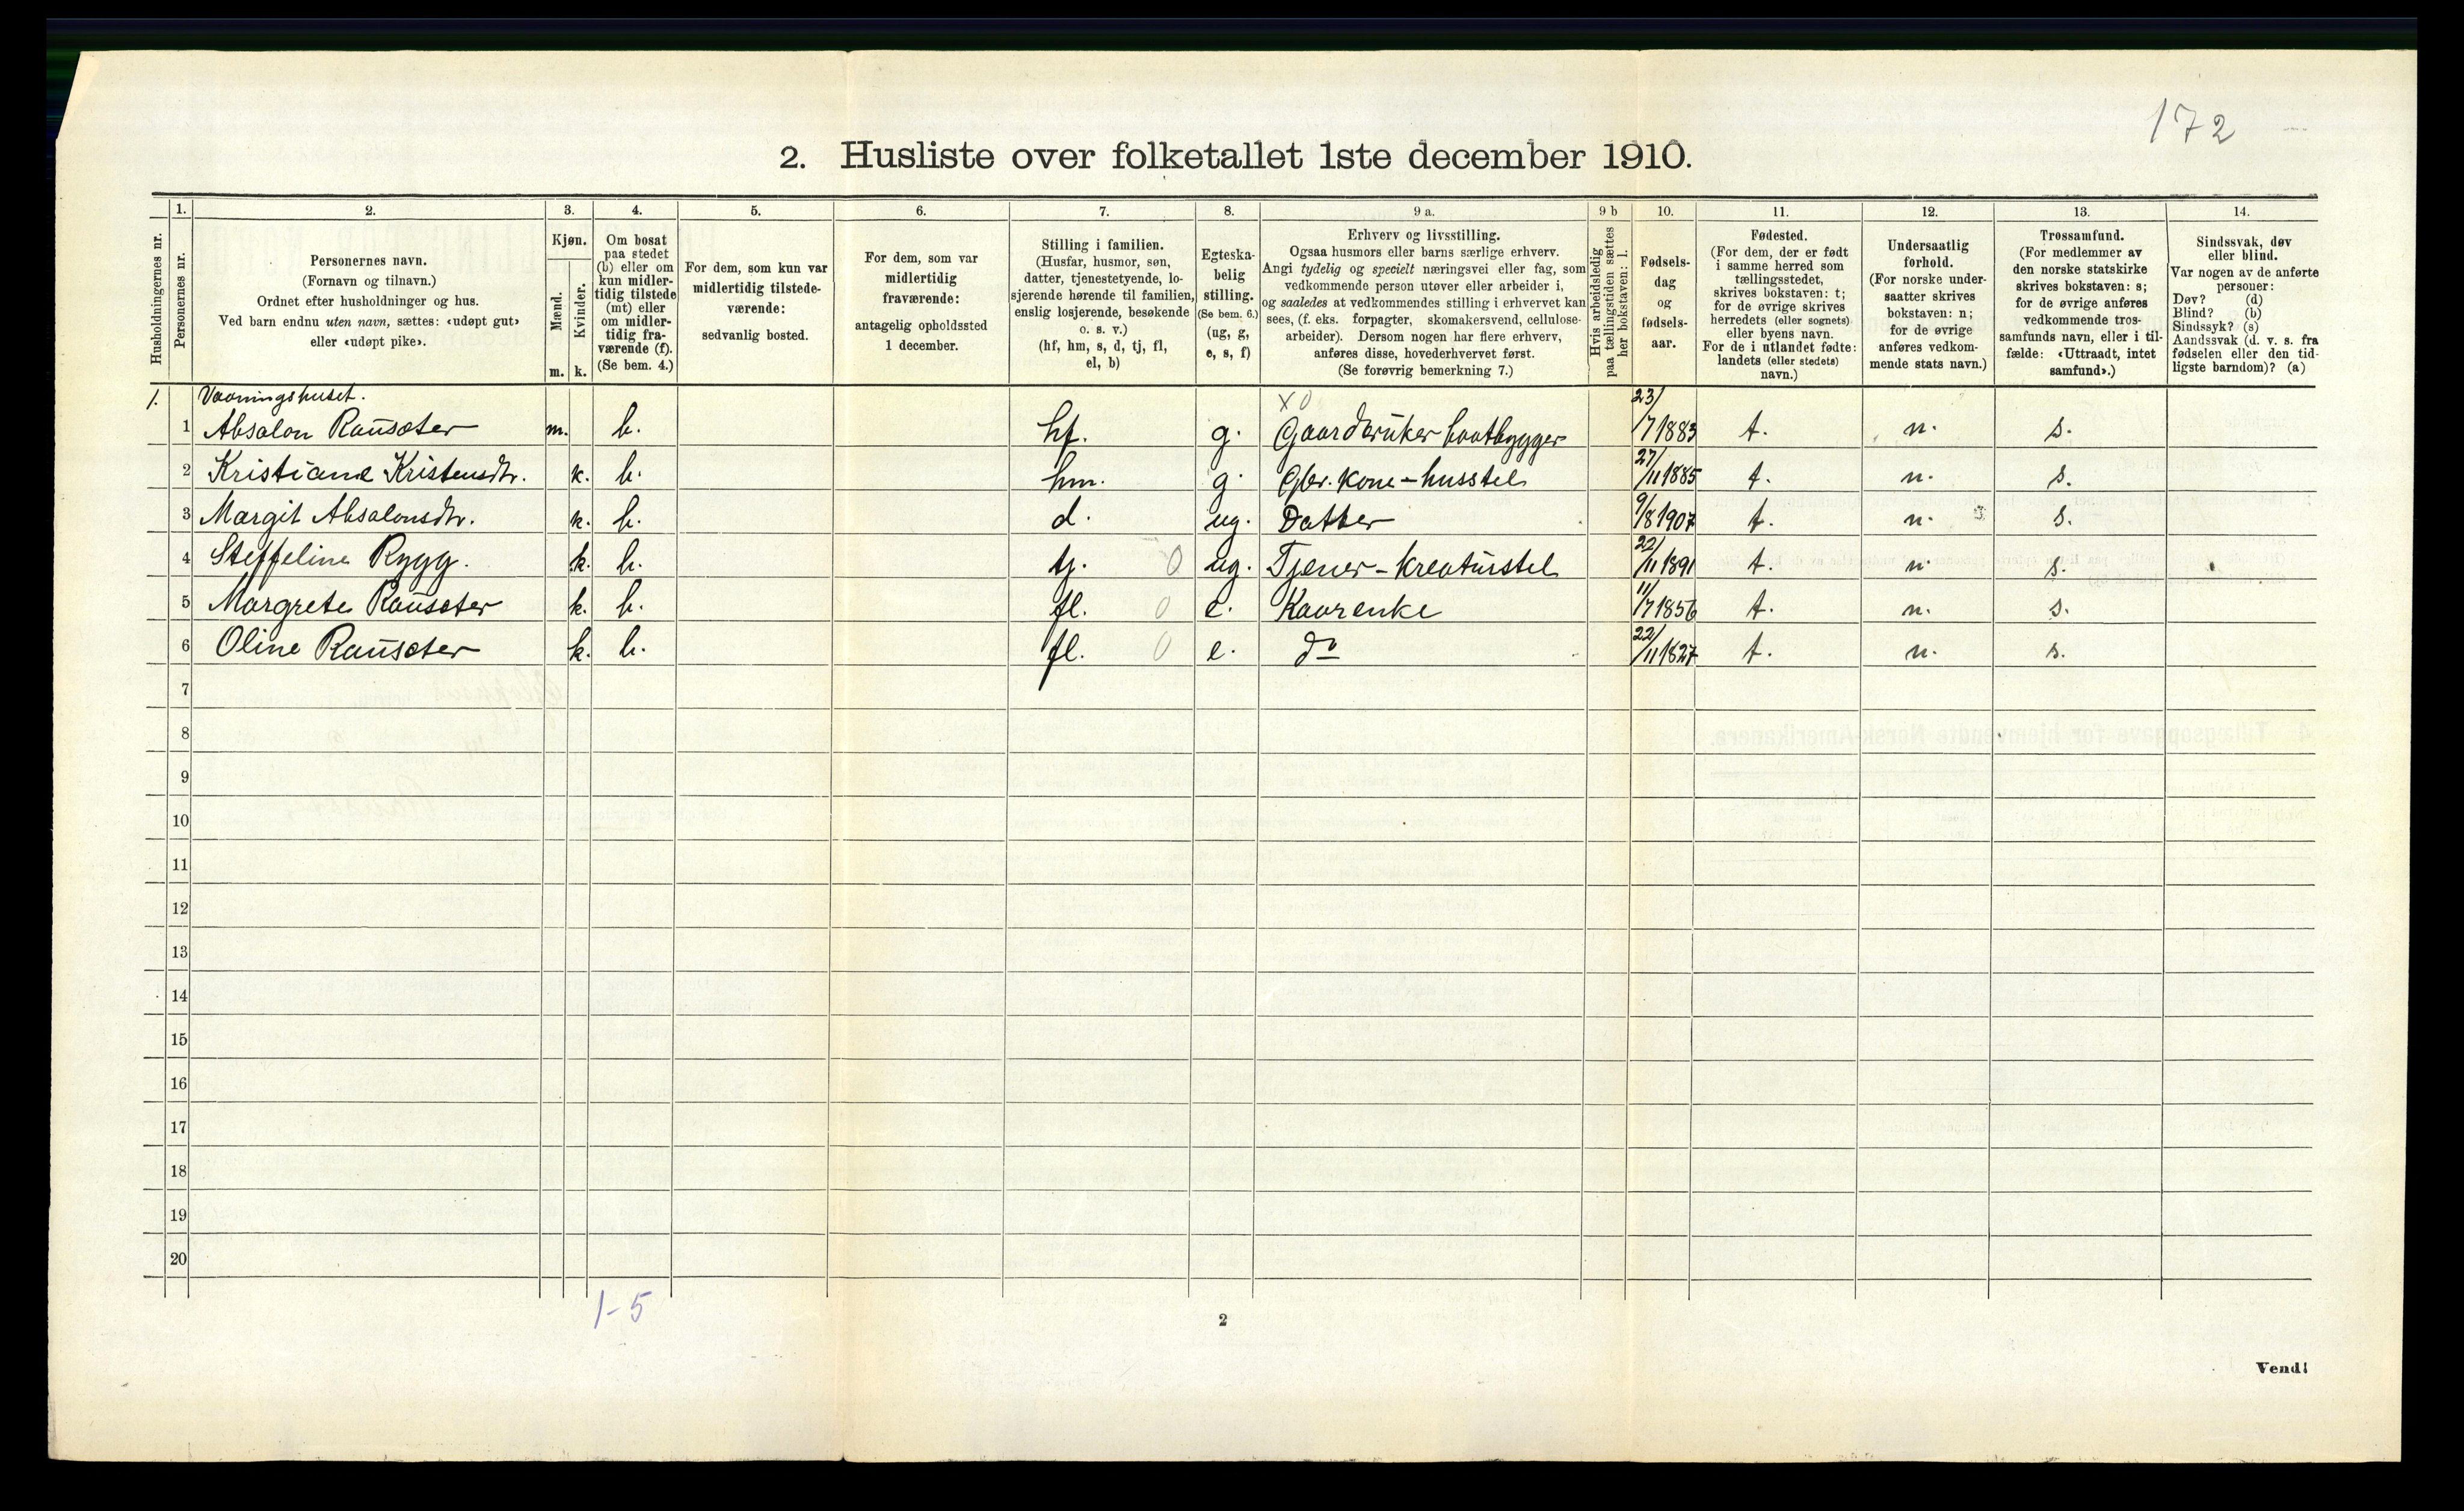 172
2. Husliste over folketallet 1ste december 1910.
Husholdningernes nr.
1.
Personernes nr.
2.
Personernes navn.
(Fornavn og tilnavn.)
Ordnet efter husholdninger og hus.
Ved barn endnu uten navn, sættes: «udøpt gut»
eller «udøpt pike».
3.
Kjøn.
Mænd.
Kvinder.
m. k.
4.
Om bosat
paa stedet
(b) eller om
kun midler-
tidig tilstede
(mt) eller
om midler-
tidig fra-
værende (f).
(Se bem. 4.)
5.
For dem, som kun var
midlertidig tilstede-
værende:
sedvanlig bosted.
6.
For dem, som var
midlertidig
fraværende:
antagelig opholdssted
1 december.
7.
Stilling i familien.
(Husfar, husmor, søn,
datter, tjenestetyende, lo-
sjerende hørende til familien,
enslig losjerende, besøkende
o. s. v.)
(hf, hm, s, d, tj, fl,
el, b)
8.
Egteska-
belig
stilling.
(Se bem. 6.)
(ug, g,
e, s, f)
9 a.
Erhverv og livsstilling.
Ogsaa husmors eller barns særlige erhverv.
Angi tydelig og specielt næringsvei eller fag, som
vedkommende person utøver eller arbeider i,
og saaledes at vedkommendes stilling i erhvervet kan
sees, (f. eks. forpagter, skomakersvend, cellulose-
arbeider). Dersom nogen har flere erhverv,
anføres disse, hovederhvervet først.
(Se forøvrig bemerkning 7.)
9 b
Hvis arbeidsledig
paa tællingstiden sættes
her bokstaven: l.
10.
Fødsels-
dag
og
fødsels-
aar.
11.
Fødested.
(For dem, der er født
i samme herred som
tællingsstedet,
skrives bokstaven: t;
for de øvrige skrives
herredets (eller sognets)
eller byens navn.
For de i utlandet fødte:
landets (eller stedets)
navn.)
12.
Undersaatlig
forhold.
(For norske under-
saatter skrives
bokstaven: n;
for de øvrige
anføres vedkom-
mende stats navn.)
13.
Trossamfund.
(For medlemmer av
den norske statskirke
skrives bokstaven: s;
for de øvrige anføres
vedkommende tros-
samfunds navn, eller i til-
fælde: «Uttraadt, intet
samfund».)
14.
Sindssvak, døv
eller blind.
Var nogen av de anførte
personer:
Døv? (d)
Blind? (b)
Sindssyk? (s)
Aandssvak (d. v. s. fra
fødselen eller den tid-
ligste barndom)? (a)
1. Vaaningshuset. X0
1 Absalon Rausæter m. b. hf. g. Gaardbruker baatbygger 23/7 1883 t. n. s.
2 Kristiane Kristensdtr. k. b. hm. g. Gbr. Kone - husstel 27/11 1885 t. n. s.
3 Margit Absalonsdtr. k. b. d. ug. Datter 9/8 1907 t. n. s.
4 Steffeline Rygg. k. b. tj. 0 ug. Tjener - Kreaturstel 22/11 1891 t. n. s.
5 Margrete Rausæter k. b. fl. 0 e. Kaarenke 11/7 1856 t. n. s.
6 Oline Rausæter k. b. fl. 0 e. do 22/11 1827 t. n. s.
7
8
9
10
11
12
13
14
15
16
17
18
19
20
1-5
2
Vend!